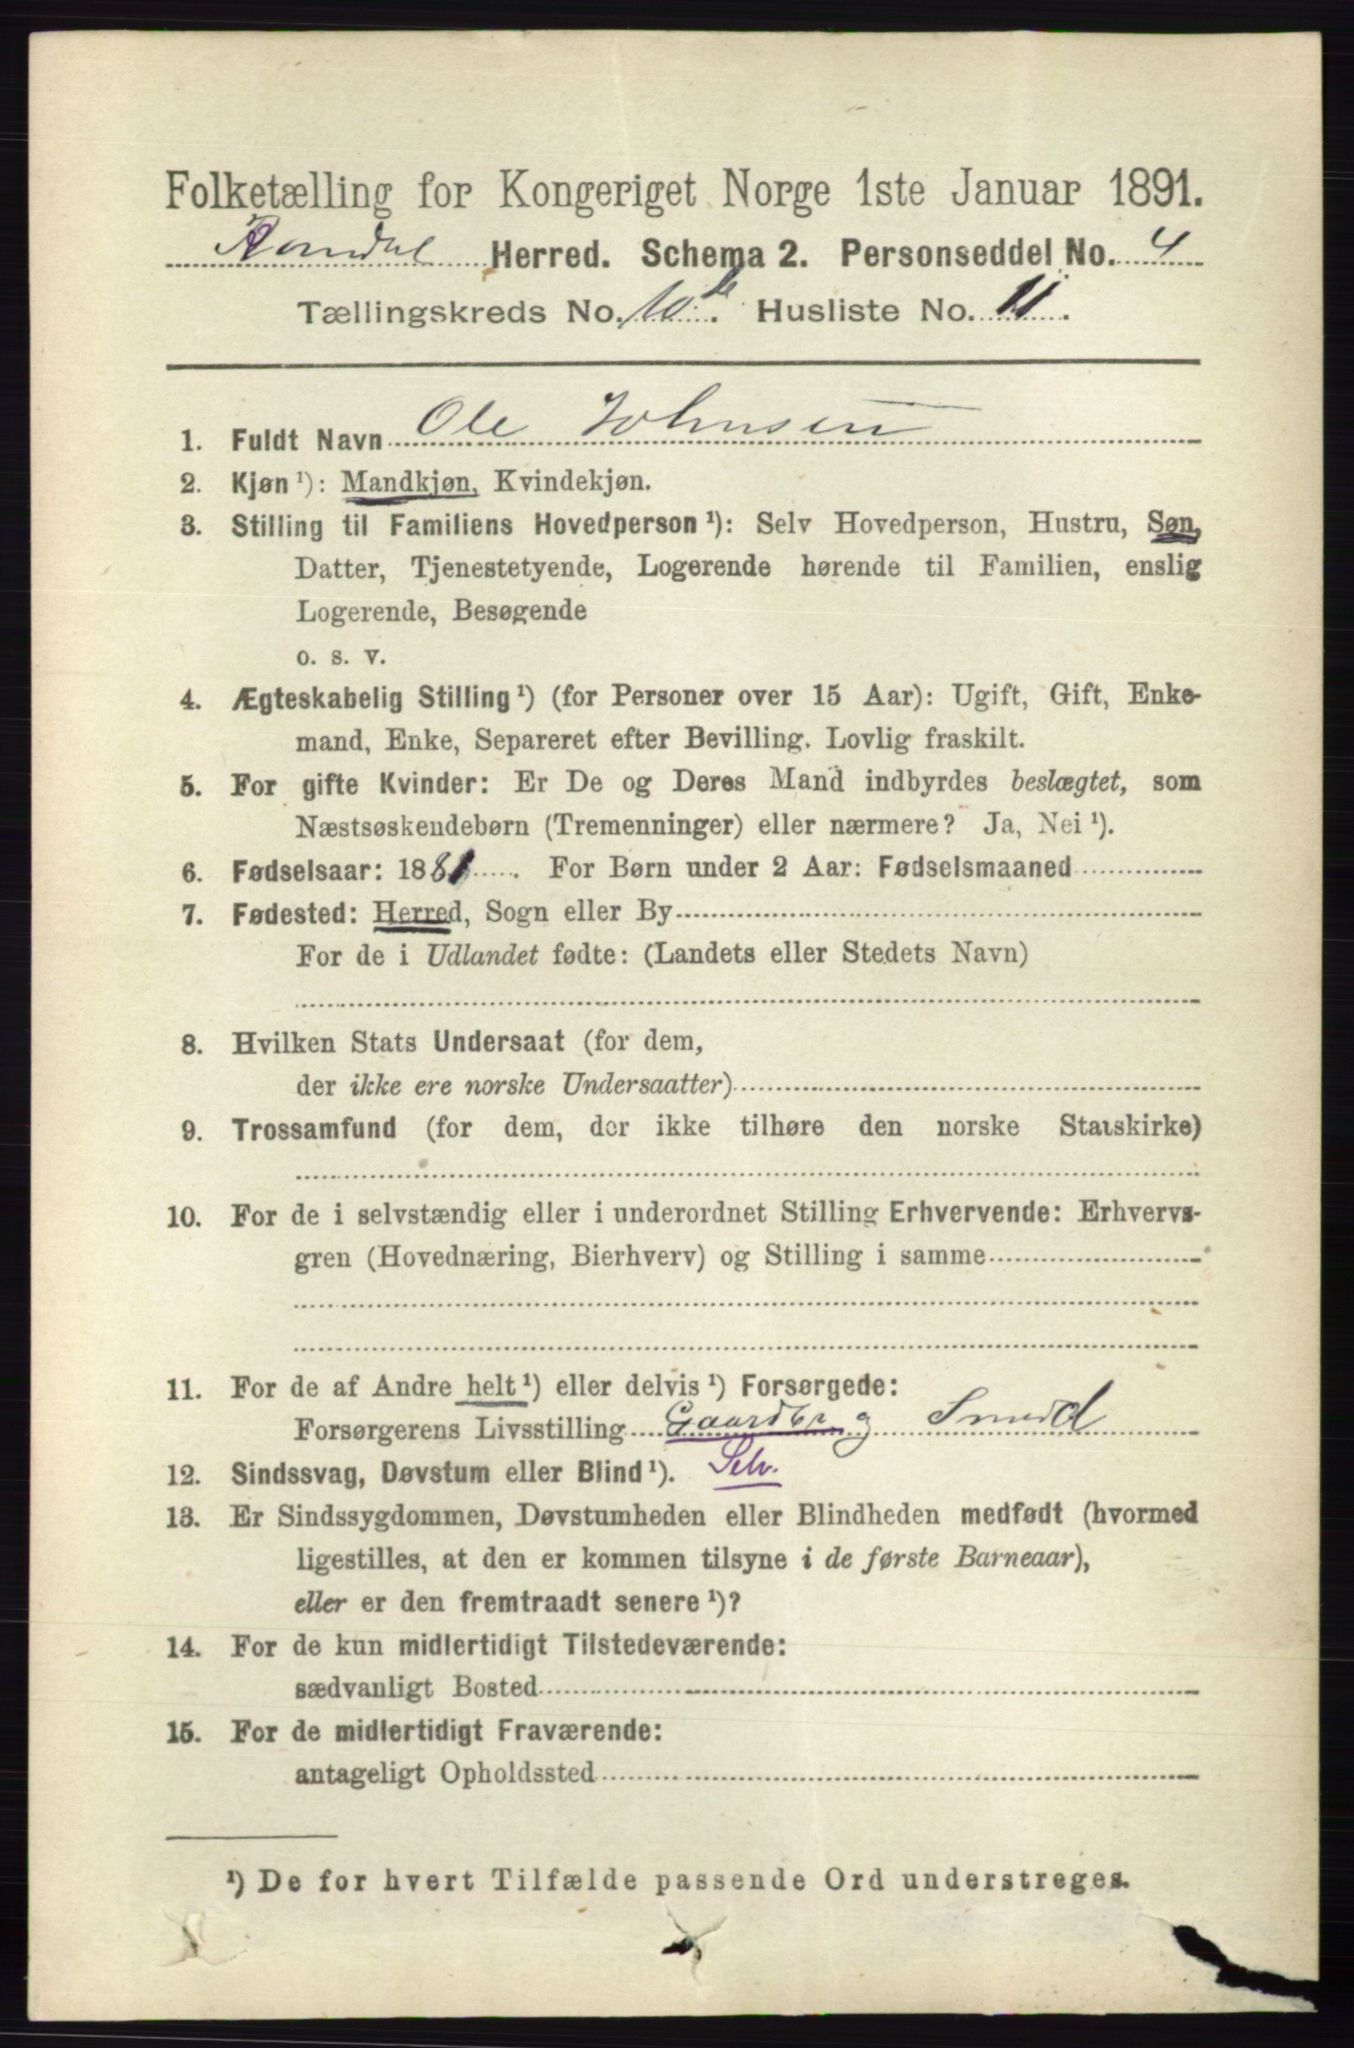 Folketælling for Kongeriget Norge 1ste Januar 1891.
Herred. Schema 2. Personseddel No. 4
Tællingskreds No. 10 b. Husliste No. 11.
1. Fuldt Navn Ole Johnsen
2. Kjøn ¹): Mandkjøn, Kvindekjøn.
3. Stilling til Familiens Hovedperson ¹): Selv Hovedperson, Hustru, Søn,
Datter, Tjenestetyende, Logerende hørende til Familien, enslig
Logerende, Besøgende
o. s. v.
4. Ægteskabelig Stilling ¹) (for Personer over 15 Aar): Ugift, Gift, Enke-
mand, Enke, Separeret efter Bevilling. Lovlig fraskilt.
5. For gifte Kvinder: Er De og Deres Mand indbyrdes beslægtet, som
Næstsøskendebørn (Tremenninger) eller nærmere? Ja, Nei ¹).
6. Fødselsaar: 1881. For Børn under 2 Aar: Fødselsmaaned
7. Fødested: Herred, Sogn eller By
For de i Udlandet fødte: (Landets eller Stedets Navn)
8. Hvilken Stats Undersaat (for dem,
der ikke ere norske Undersaatter)
9. Trossamfund (for dem, der ikke tilhøre den norske Statskirke)
10. For de i selvstændig eller i underordnet Stilling Erhvervende: Erhvervs-
gren (Hovednæring, Bierhverv) og Stilling i samme
11. For de af Andre helt ¹) eller delvis ¹) Forsørgede:
Forsørgerens Livsstilling Gaardbr og Smed
12. Sindssvag, Døvstum eller Blind ¹). Selv.
13. Er Sindssygdommen, Døvstumheden eller Blindheden medfødt (hvormed
ligestilles, at den er kommen tilsyne i de første Barneaar),
eller er den fremtraadt senere ¹)?
14. For de kun midlertidigt Tilstedeværende:
sædvanligt Bosted
15. For de midlertidigt Fraværende:
antageligt Opholdssted
¹) De for hvert Tilfælde passende Ord understreges.